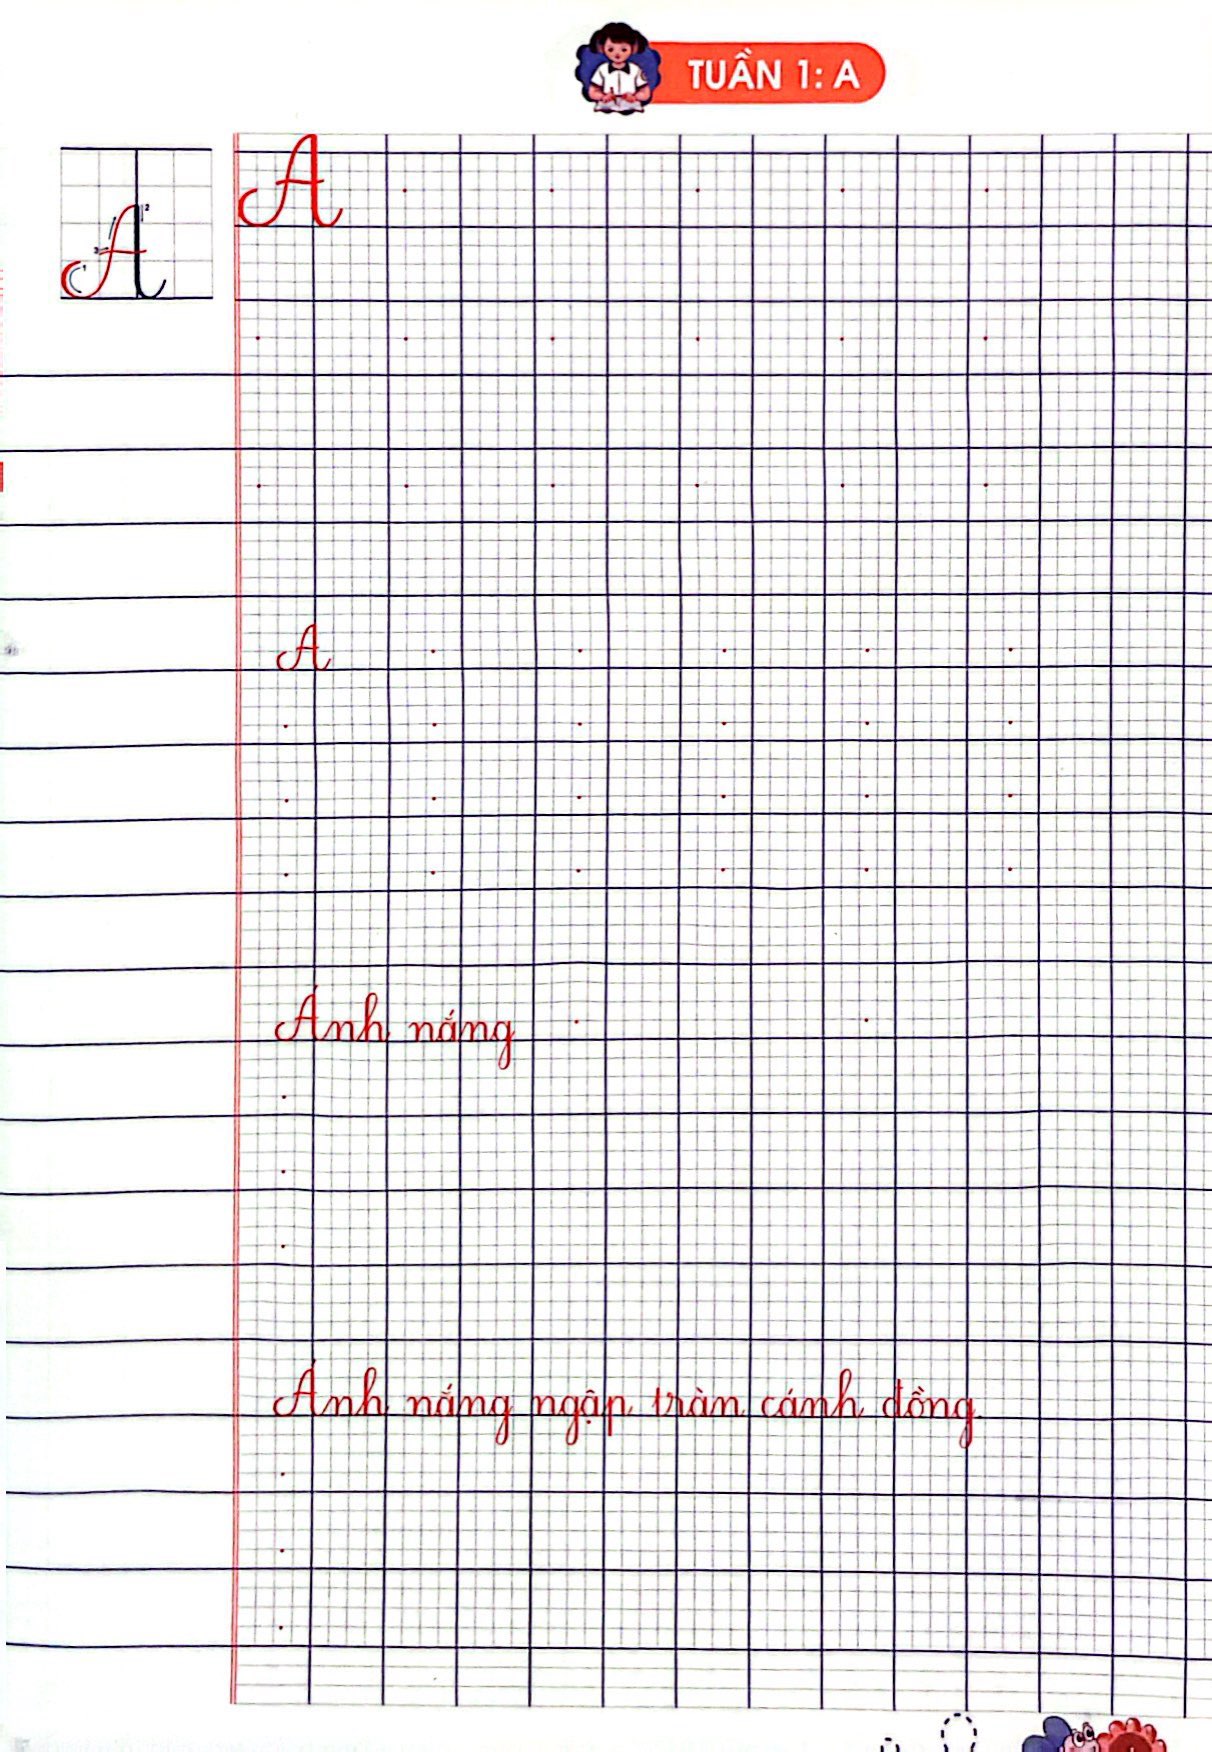 TUẦN 1: A
A
1 2 3 A
A
Ánh nắng
Ánh nắng ngập tràn cánh đồng.